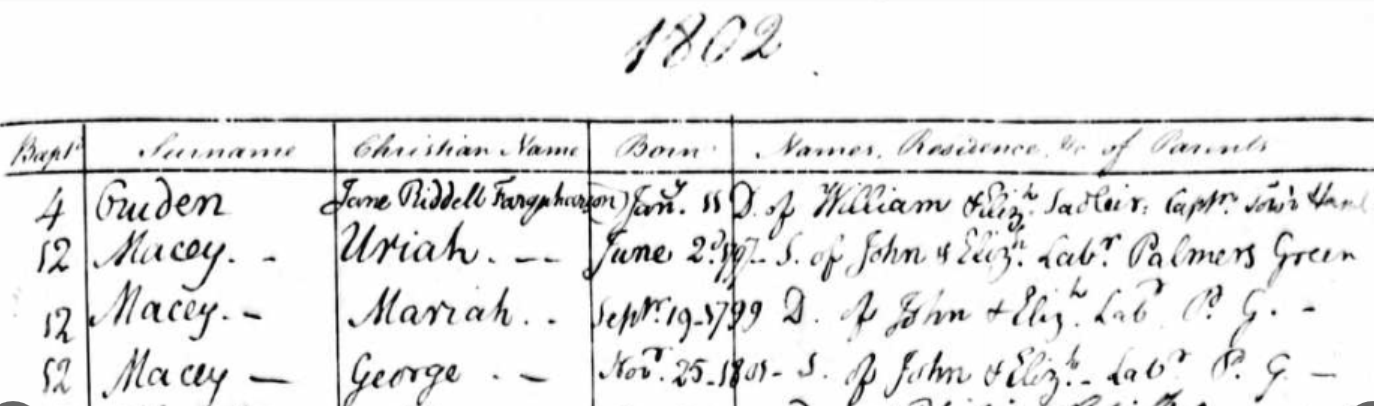 1802
Bapt.d Surname Christian Name Born Names, Residence, &c of Parents
4 Jane Riddell Farquharson) Jan.y 11 D. of William & Eliz.h Sadleir,
12 Macey. - Uriah. -- June 2.d 1797- S. of John & Eliz.h Lab.r Palmers Green
12 Macey. - Mariah. . Sept.r 19-1799 D. of John & Eliz.h Lab.r P. G. -
12 Macey - George . - Nov.r 25-1801- S. of John & Eliz.h - Lab.r P. G. -